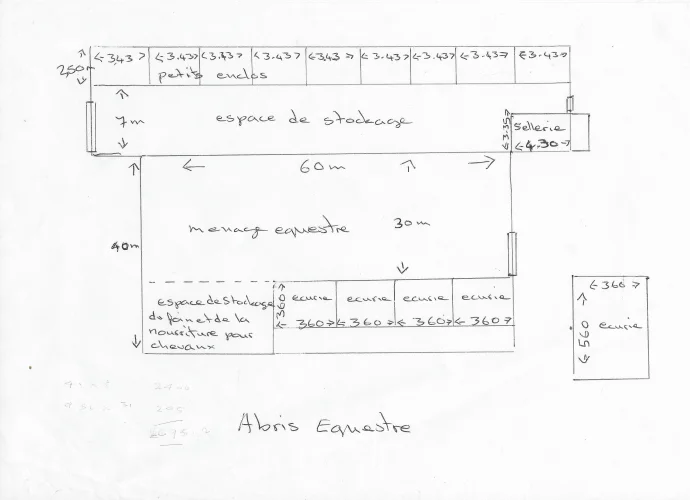 2,50m
<3.43> <3.43> <3.43> <3.43> <3.43> <3.43> <3.43> <3.43> <3.43>
petits enclos
7m
espace de stockage
3.35
Sellerie
4.30
60m
menage equestre
30m
40m
360
ecurie ecurie ecurie ecurie
<360> <360> <360> <360>
espace de stockage
de foin et de la
nourriture pour
chevaux
<360>
560
ecurie
Abris Equestre